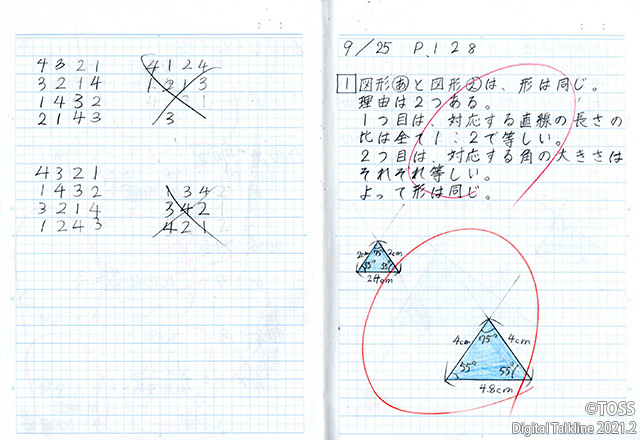 4 3 2 1
3 2 1 4
1 4 3 2
2 1 4 3
4 1 2 4
1 2 1 3
3
4 3 2 1
1 4 3 2
3 2 1 4
1 2 4 3
3 4
3 4 2
4 2 1
9/25 P.128
1 図形あと図形えは、形は同じ。
理由は2つある。
1つ目は、対応する直線の長さの
比は全て1:2で等しい。
2つ目は、対応する角の大きさは
それぞれ等しい。
よって形は同じ。
2cm 75° 2cm
55° 55°
2.4cm
4cm 75° 4cm
55° 55°
4.8cm
©TOSS
Digital Talkline 2021.2